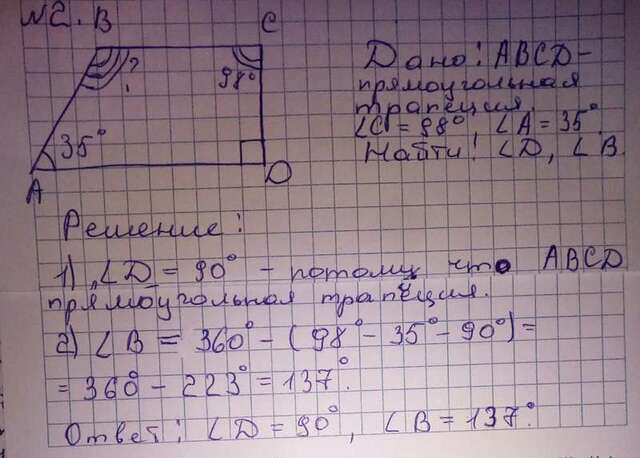 №2.
B
C
?
98°
35°
A
D
Дано: ABCD-
прямоугольная
трапеция.
∠C = 98° ∠A = 35°.
Найти: ∠D, ∠B
Решение:
1) ∠D = 90° - потому что ABCD
прямоугольная трапеция.
2) ∠B = 360° - (98° - 35° - 90°) =
= 360° - 223° = 137°.
Ответ: ∠D = 90°, ∠B = 137°.